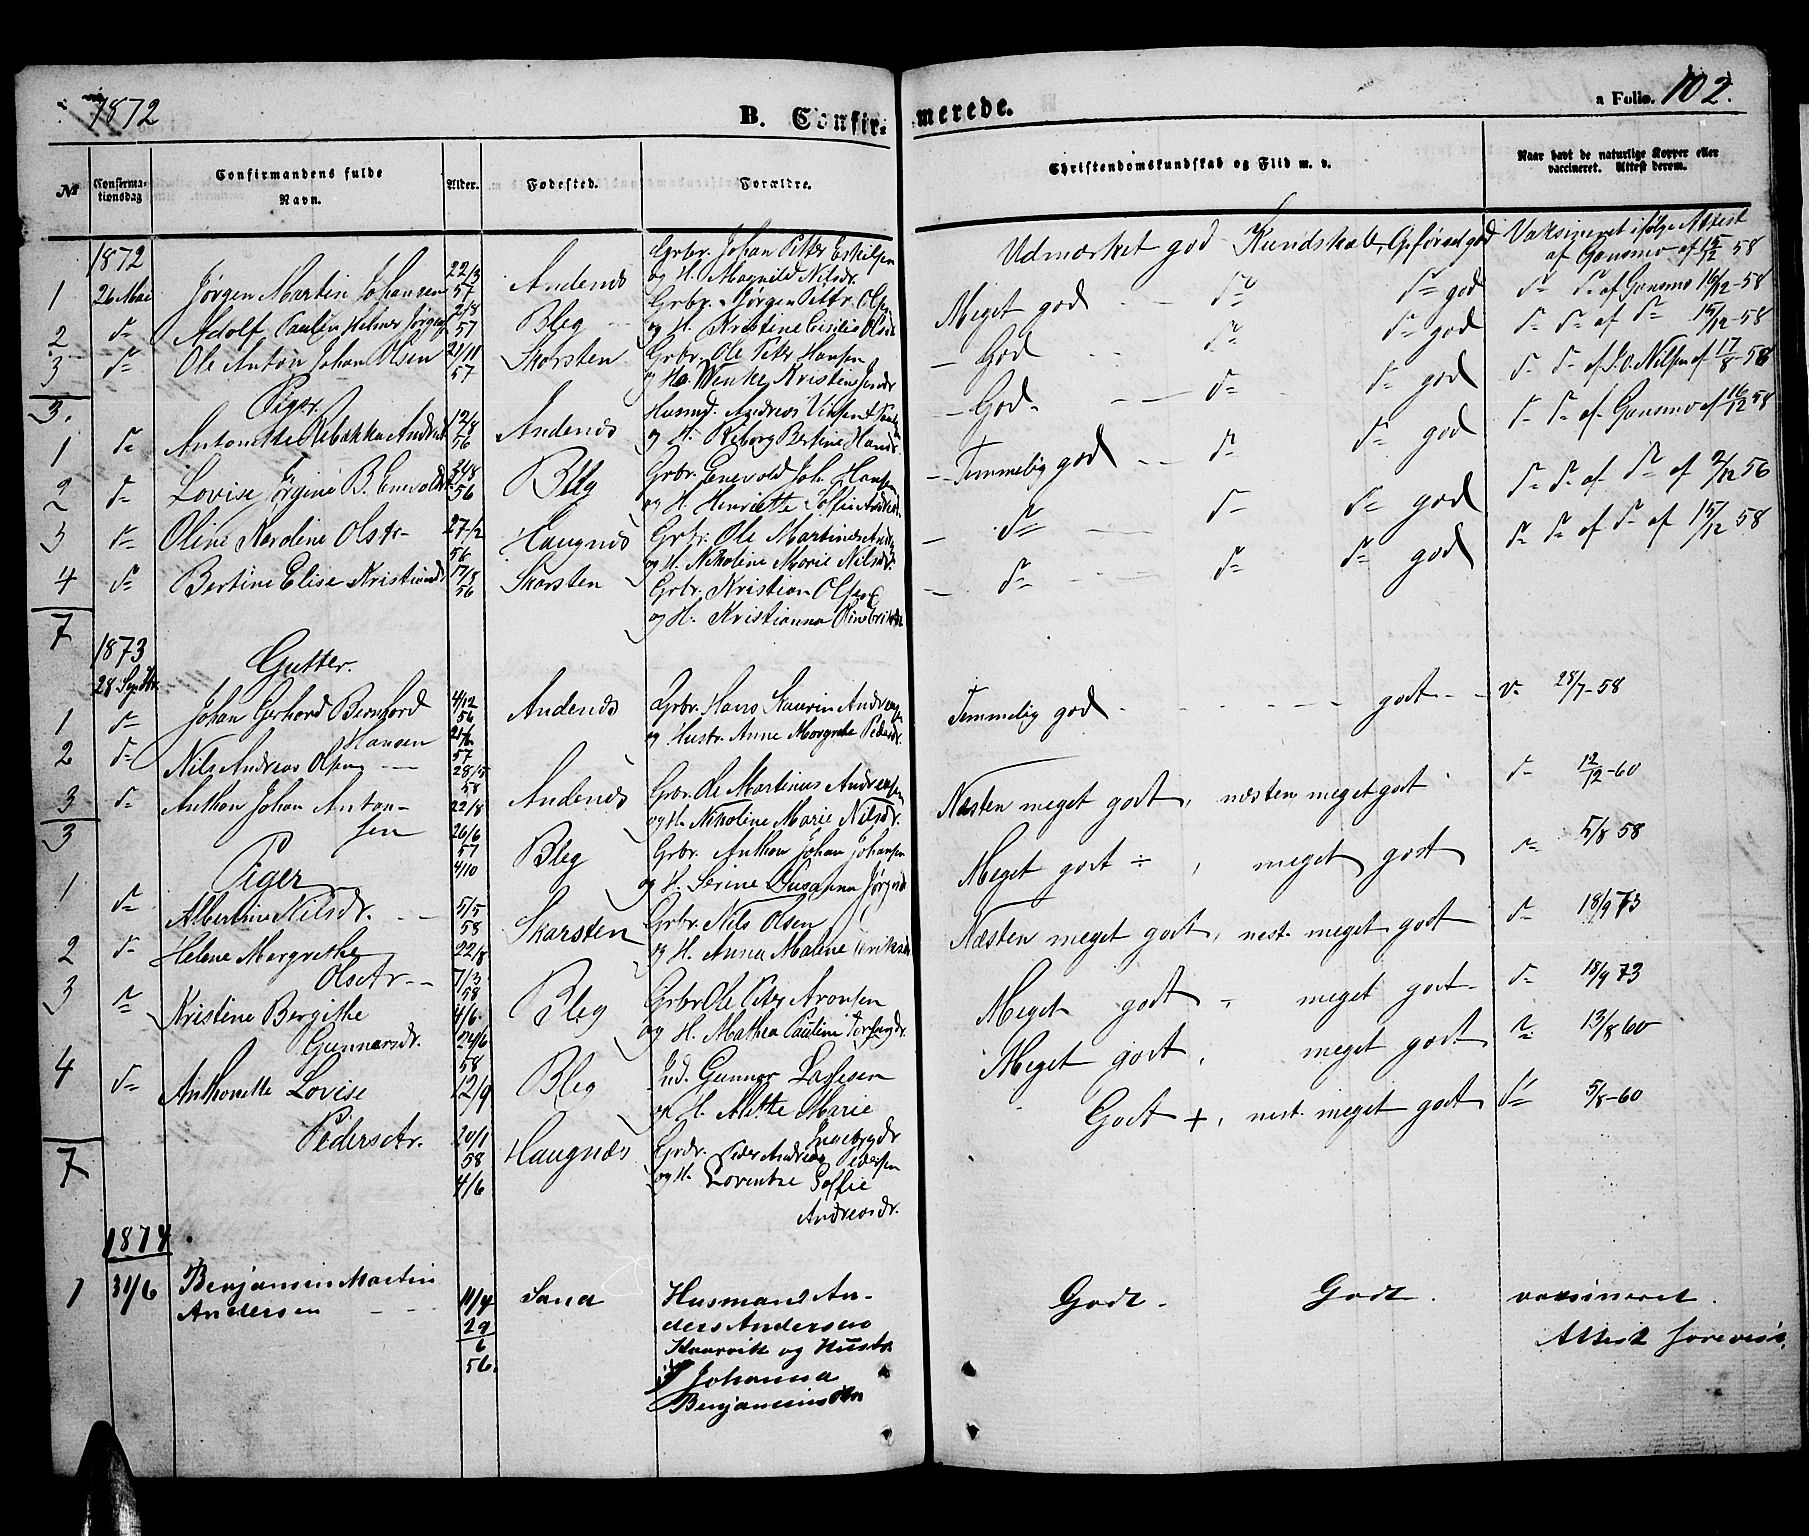 1872
B. Confirmerede.
a Folio. 102.
№
Confirmationsdag
Confirmandens fulde Navn.
Alder.
Fødested.
Forældre.
Christendomskundskab og Flid m. v.
Naar havt de naturlige Kopper eller vaccineret. Attest derom.
1872
1 26 Mai Jørgen Martin Johansen 22/3 57 Andenes Grbr. Johan Peter Eskilsen og H. Magnild Nilsdr. Udmærket god Kundskab, Opførsel god Vaksineret ifølge Attest af Gonsmo af 15/12 58
2 d= Adolf Paulin Helmer Jørgens 2/8 57 Bleg Grbr. Jørgen Petr. Olsen og H. Kristine Olsdr Meget god d= d= god d= d= af Gonsmo 16/12-58
3 d= Ole Anton Johan Olsen 21/11 57 Skarsten Grbr. Ole Peter Hansen og H. Wenke Kristine God d= d= god d= d= af d= 15/12-58
3.
Piger.
1 d= Antonette Rebakka Andreasd 12/8 56 Andenes Husmd. Andreas og H. Reborg Bertine Hansdr. God. d= d= god d= d= af J.O. Nilsen af 17/8-58
2 d= Lovise Jørgine B. Enevoldsd 24/8 56 Bleg Grbr. Enevold Joh. Hansen og H. Henriette Soffie Temmelig god d= d= god d= d= af Gonsmo af 16/12 58
3 d= Oline Karoline Olsdr 27/2 56 Haugnes Grbr. Ole Martinus og H. Nikoline Marie Nilsdr. d= d= d= god d= d= af d= af 2/12 56
4 d= Bertine Elise Kristiansd 17/8 56 Skarsten Grbr. Kristian Olsen og H. Kristianna d= d= d= god d= d= af d= af 15/12 58
7
1873
28 Septbr. Gutter.
1 d= Johan Gerhard Bernhard Hansen 4/12 56 Andenes Grbr. Hans Andreasen og Hustr. Anne Margrethe Pedersdr. Temmelig god godt v= 28/7-58
2 d= Nils Andreas Olsen 28/5 58 Andenes Grbr. Ole Martinus Andreasen og H. Nikoline Marie Nilsdr. Næsten meget godt, næsten meget godt d= 12/12-60
3 d= Anthon Johan Antonsen 22/8 Bleg Grbr. Anthon Johan Johansen og H. Serine Susanna Jørgensd Meget godt ÷, meget godt d= 5/8 58
3
Piger
1 d= Albertine Nilsdr. 5/5 58 Skarsten Grbr. Nils Olsen og H. Anna Malene Næsten meget godt, nest. meget godt d= 18/9 73
2 d= Helene Margrethe Olsdtr 22/8 7/3 58 Bleg Grbr Ole Peter Aronsen og H. Mathea Pauline Meget godt meget godt d= 18/9 73
3 d= Kristine Bergithe Gunnarsdr. 4/6 24/6 58 Bleg Ind. Gunnar Lassesen og H. Alette Marie Ingebrgdr Meget godt, meget godt d= 13/8 60
4 d= Anthonette Lovise Pedersdtr. 12/9 20/1 58 4/6 Haugnæs Grbr. Peder Andreas Pedersen og H. Lorentse Soffie Andreasdr. Godt +, nest. meget godt d= 5/8-60
7
1874
1 31/6 Benjamin Martin
Andersen 11/4 29/6 56. Sand Husmand Anders Andersen
og Hustr. Johanna
Benjaminsdtr Godt. Godt. vaksineret.
Attest forevist.